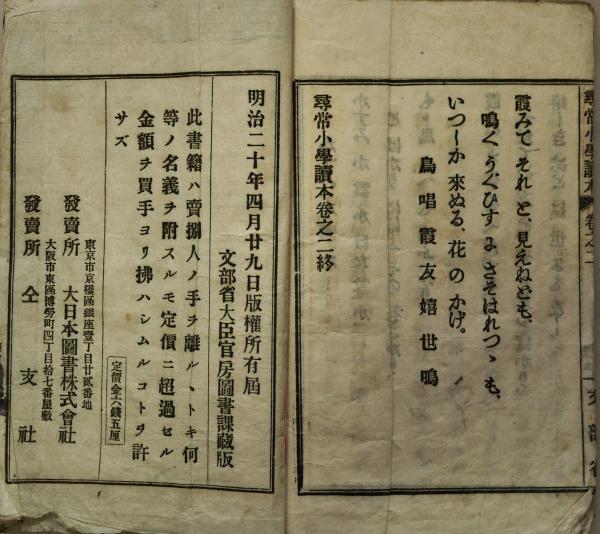 尋常小學讀本 卷之二
文部省
霞みて、それ、と、見えねども、
鳴く、うぐひす、に、さそはれつゝ、も、
いつしか、來ぬる、花、の、かげ。
鳥 唱 霞 友 嬉 世 鳴
尋常小學讀本卷之二終
明治二十年四月廿九日版權所有屆
文部省大臣官房圖書課藏版
此書籍ハ賣捌人ノ手ヲ離ルヽトキ何
等ノ名義ヲ附スルモ定價ニ超過セル
金額ヲ買手ヨリ拂ハシムルコトヲ許
サズ
定價金六錢五厘
東京市京橋區銀座壹丁目廿貳番地
發賣所 大日本圖書株式會社
大阪市東區博勞町四丁目拾七番屋敷
發賣所 仝支社